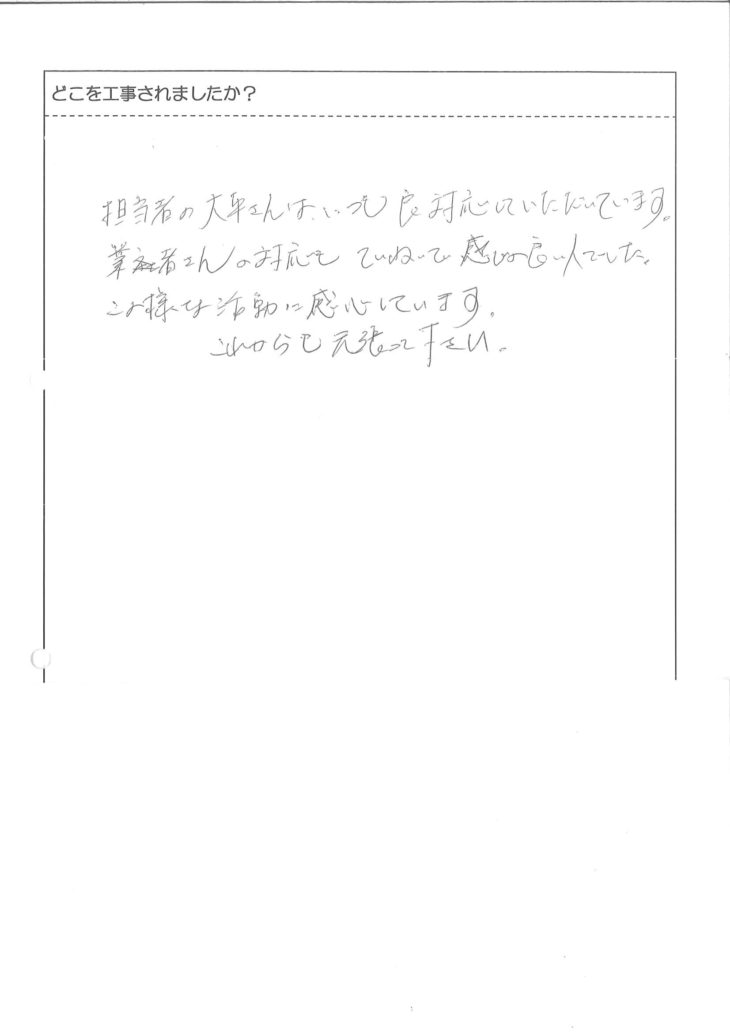 どこを工事されましたか？
担当者の大平さんは、いつも良対応していただいています。
業者さんの対応もていねいで感じの良い人でした。
この様な活動に感心しています。
これからも元張って下さい。